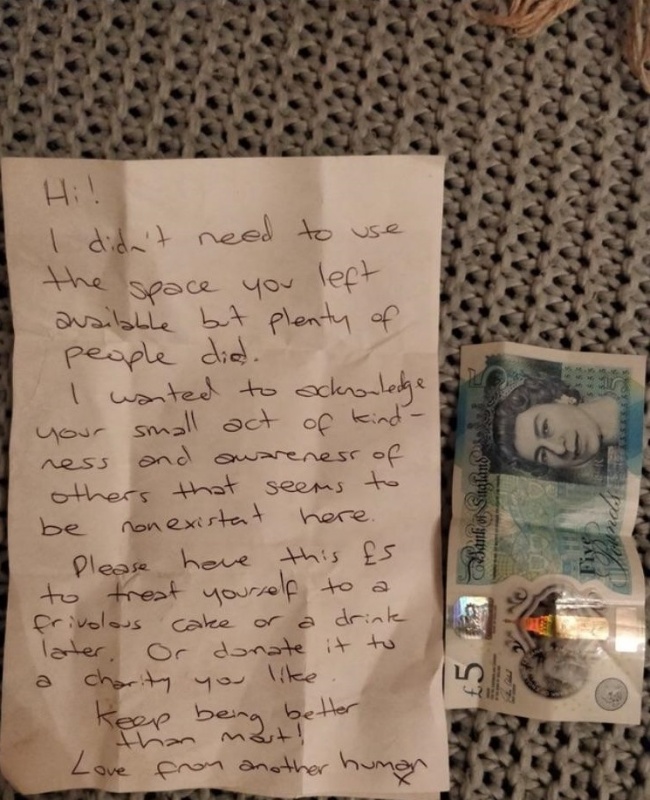 Hi!
I didn't need to use
the space you left
available but plenty of
people did.
I wanted to acknowledge
your small act of kind-
ness and awareness of
others that seems to
be nonexistent here.
Please have this £5
to treat yourself to a
frivolous cake or a drink
later. Or donate it to
a charity you like.
Keep being better
than most!
Love from another human
x
Bank of England
Five
Pounds
£5